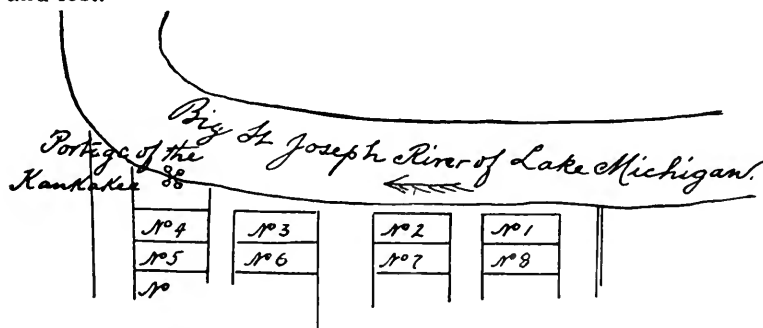 Big St Joseph River of Lake Michigan.
Portage of the
Kankakee
No 4 No 3 No 2 No 1
No 5 No 6 No 7 No 8
No